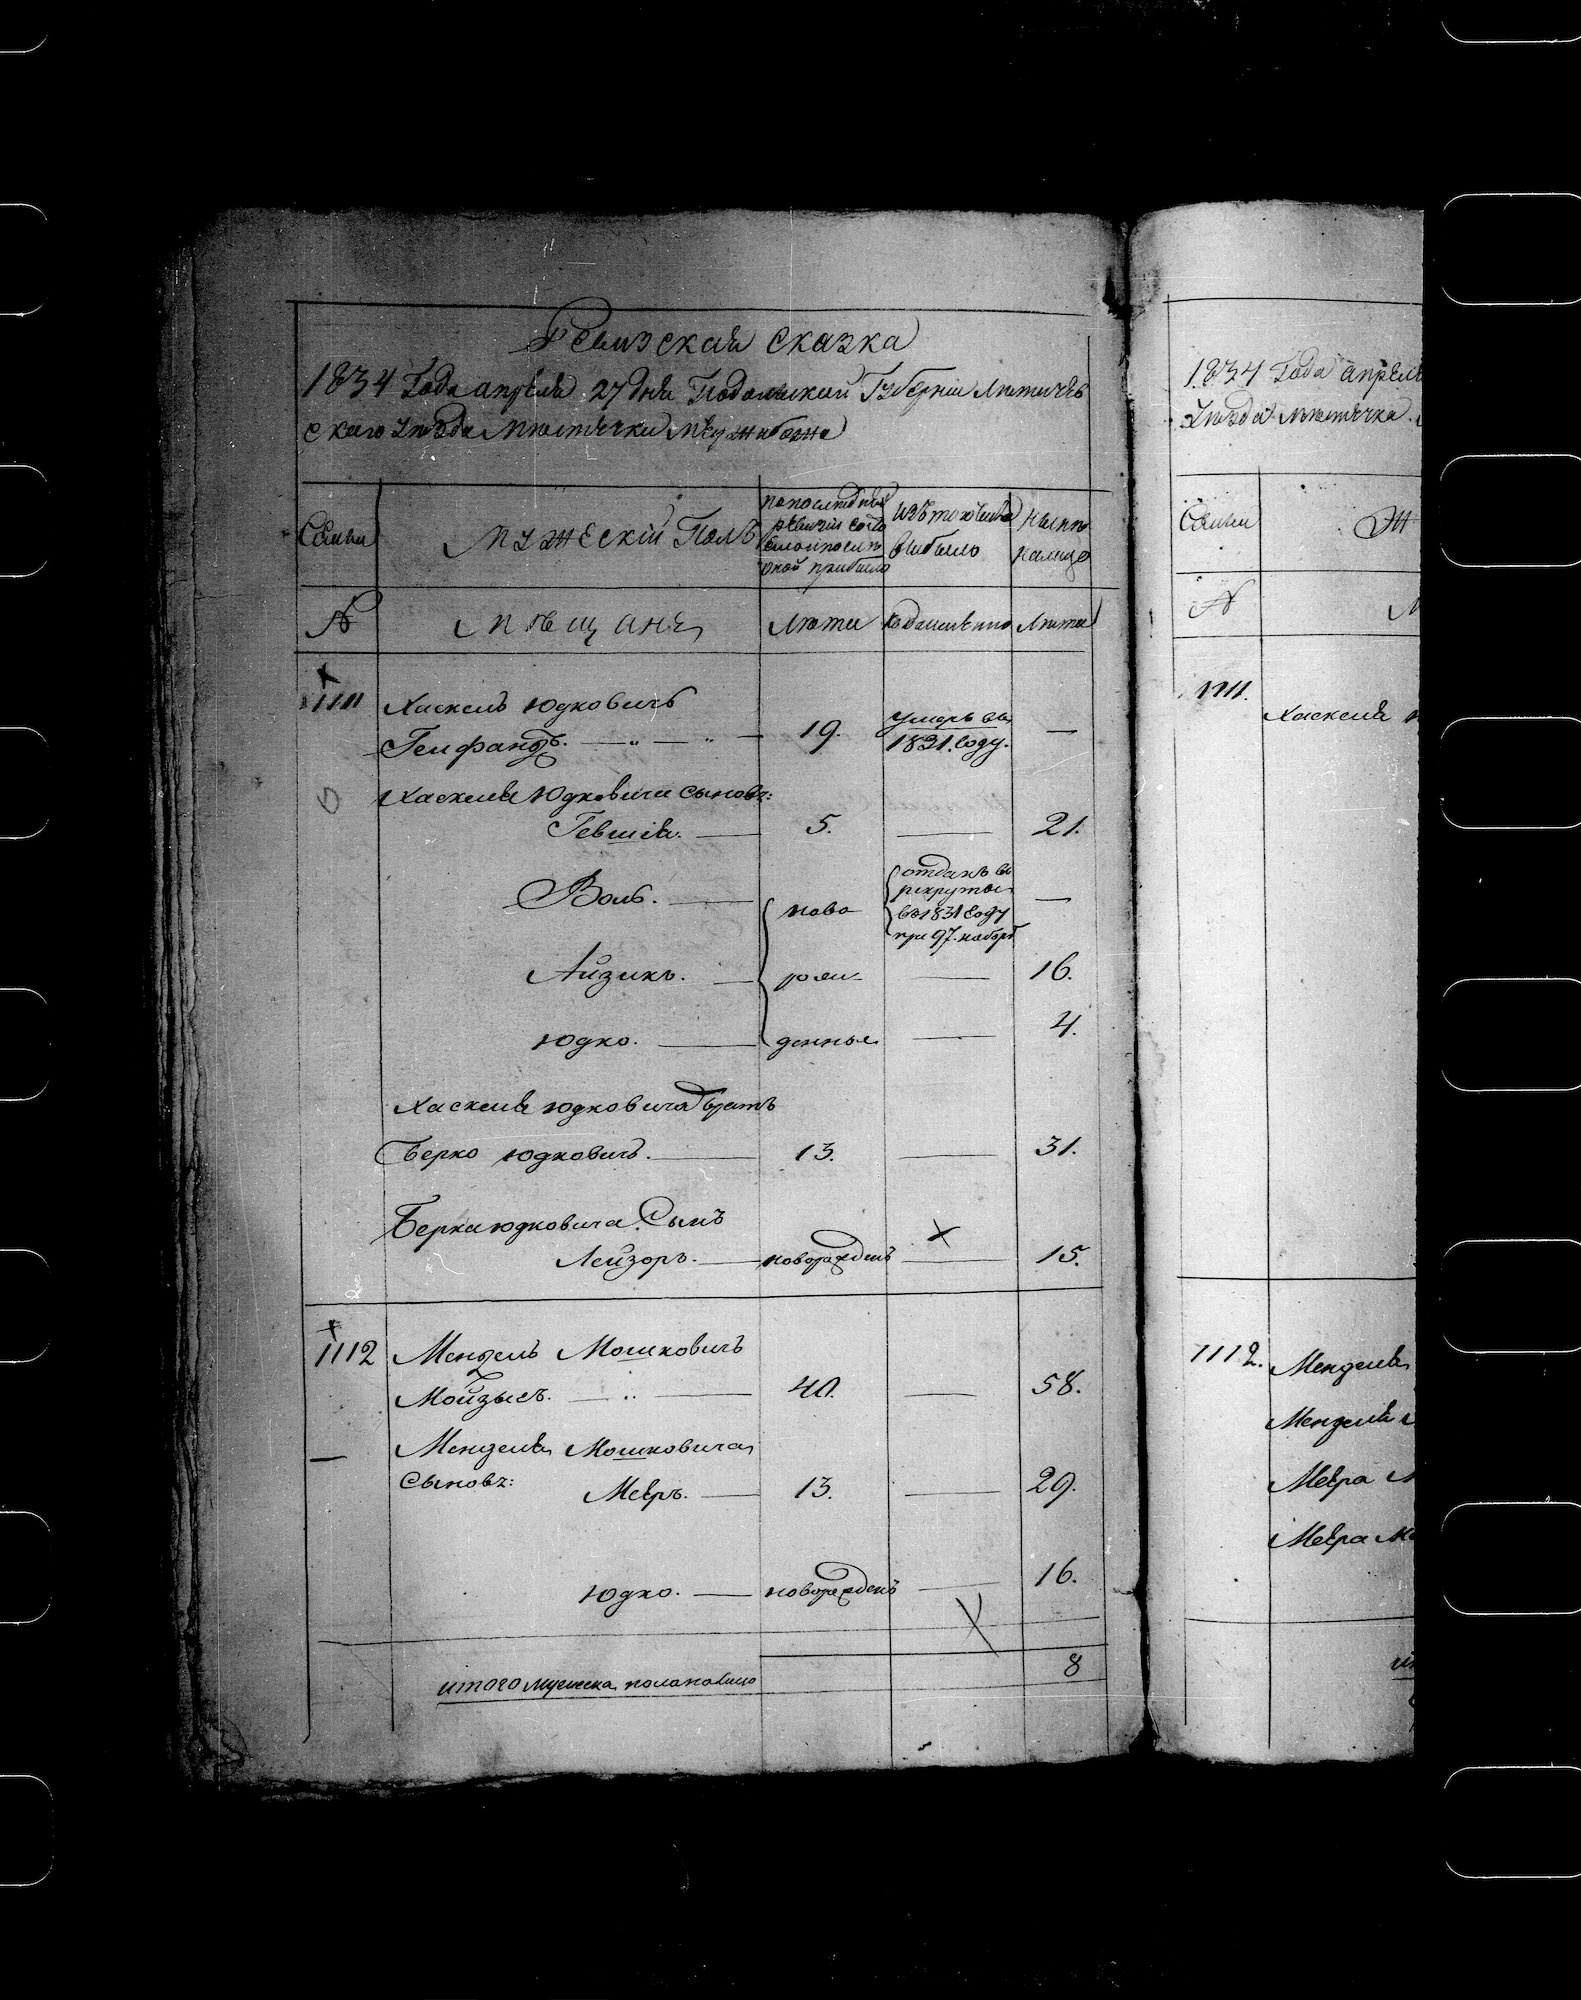 Ревизская сказка
1834 Года апреля 27 дня Подольской Губернии Литичев
скаго Уезда Местечка Межибожа
Семьи
Мужескій Полъ
по последней
ревизіи состо
яло и после
оной прибыло
Изъ того числа
выбыло
Ныне
на лицо
№
Мещане
Лета
Когда именно
Лета
1111
Хаскель Юдковичъ
Гелфандъ. — „ — „ —
19.
умеръ въ
1831. Году.
—
Хаскеля Юдковича сыновъ:
Гевшія. —
5.
—
21.
Воль. —
ново
отданъ въ
рекруты
въ 1831 Году
при 97. наборе
—
Айзикъ. —
рож
—
16.
Юдко. —
денные
—
4.
Хаскеля Юдковича братъ
Берко Юдковичъ. —
13.
—
31.
Берка Юдковича Сынъ
Лейзоръ. —
новорожденъ
—
15.
1112
Мендель Мошковичъ
Мойзысъ. — „ —
40.
—
58.
Менделя Мошковича
сыновъ:
Мееръ. —
13.
—
29.
Юдко. —
новорожденъ
—
16.
итого мужеска пола налицо
8
1834 Года апреля
Уезда Местечка
Семьи
Ж
№
М
1111.
Хаскеля
1112.
Менделя
Менделя
Меера М
Меера Мо